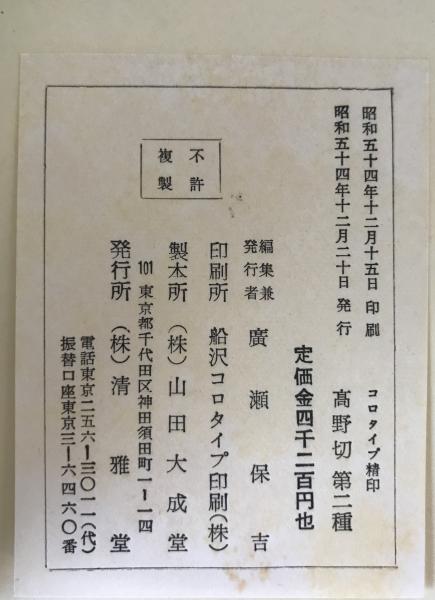 昭和五十四年十二月十五日 印刷
昭和五十四年十二月二十日 発行
コロタイプ精印
高野切 第二種
定価金四千二百円也
編集兼
発行者 廣瀬保吉
印刷所 船沢コロタイプ印刷(株)
製本所 (株)山田大成堂
101 東京都千代田区神田須田町一ー一四
発行所 (株)清雅堂
電話東京二五六ー三〇一一(代)
振替口座東京三ー六四六〇番
不許
複製